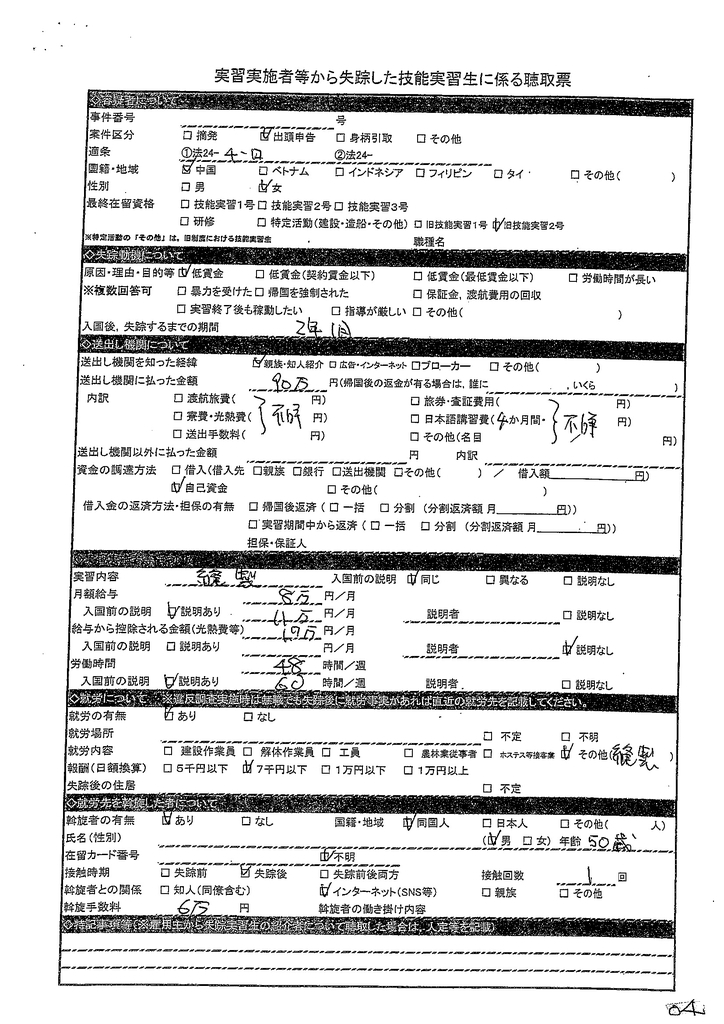 実習実施者等から失踪した技能実習生に係る聴取票
◇容疑者について
事件番号 号
案件区分 □ 摘発 ☑ 出頭申告 □ 身柄引取 □ その他
適条 ①法24- 4-ロ ②法24-
国籍・地域 ☑ 中国 □ ベトナム □ インドネシア □ フィリピン □ タイ □ その他( )
性別 □ 男 ☑ 女
最終在留資格 □ 技能実習1号 □ 技能実習2号 □ 技能実習3号
□ 研修 □ 特定活動(建設・造船・その他) □ 旧技能実習1号 ☑ 旧技能実習2号
※特定活動の「その他」は、旧制度における技能実習生 職種名
◇失踪動機について
原因・理由・目的等 ☑ 低賃金 □ 低賃金(契約賃金以下) □ 低賃金(最低賃金以下) □ 労働時間が長い
※複数回答可 □ 暴力を受けた □ 帰国を強制された □ 保証金、渡航費用の回収
□ 実習終了後も稼動したい □ 指導が厳しい □ その他( )
入国後、失踪するまでの期間 2年1月
◇送出し機関について
送出し機関を知った経緯 ☑ 親族・知人紹介 □ 広告・インターネット □ ブローカー □ その他( )
送出し機関に払った金額 90万 円(帰国後の返金が有る場合は、誰に 、いくら )
内訳 □ 渡航旅費( 円) □ 旅券・査証費用( 円)
□ 寮費・光熱費( 不詳 円) □ 日本語講習費(4か月間・ 不詳 円)
□ 送出手数料( 円) □ その他(名目 円)
送出し機関以外に払った金額 円 内訳
資金の調達方法 □ 借入(借入先 □親族 □銀行 □送出機関 □その他( ) ／ 借入額 円)
☑ 自己資金 □ その他( )
借入金の返済方法・担保の有無 □ 帰国後返済 (□ 一括 □ 分割 (分割返済額 月 円))
□ 実習期間中から返済 (□ 一括 □ 分割 (分割返済額 月 円))
担保・保証人
実習内容 縫製 入国前の説明 ☑ 同じ □ 異なる □ 説明なし
月額給与 8万 円／月
入国前の説明 ☑ 説明あり 11万 円／月 説明者 □ 説明なし
給与から控除される金額(光熱費等) 1.9万 円／月
入国前の説明 □ 説明あり 円／月 説明者 ☑ 説明なし
労働時間 48 時間／週
入国前の説明 ☑ 説明あり 60 時間／週 説明者 □ 説明なし
◇就労について ※違反調査実施時は無職でも失踪後に就労事実があれば直近の就労先を記載してください。
就労の有無 ☑ あり □ なし
就労場所 □ 不定 □ 不明
就労内容 □ 建設作業員 □ 解体作業員 □ 工員 □ 農林業従事者 □ ホステス等接客業 ☑ その他(縫製)
報酬(日額換算) □ 5千円以下 ☑ 7千円以下 □ 1万円以下 □ 1万円以上
失踪後の住居 □ 不定
◇就労先を斡旋した者について
斡旋者の有無 ☑ あり □ なし 国籍・地域 ☑ 同国人 □ 日本人 □ その他( 人)
氏名(性別) (☑ 男 □ 女) 年齢 50歳
在留カード番号 ☑ 不明
接触時期 □ 失踪前 ☑ 失踪後 □ 失踪前後両方 接触回数 1 回
斡旋者との関係 □ 知人(同僚含む) ☑ インターネット(SNS等) □ 親族 □ その他
斡旋手数料 6万 円 斡旋者の働き掛け内容